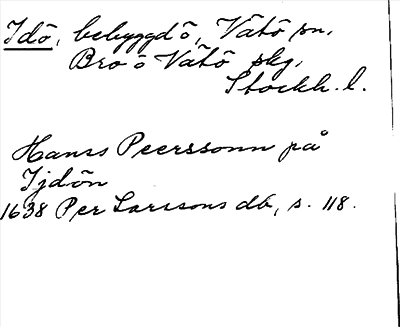 Idö, bebyggd ö, Vätö sn,
Bro o Vätö skg,
Stockh. l.
Hanss Peerssonn på
Ijdön
1638 Per Larssons db, s. 118.